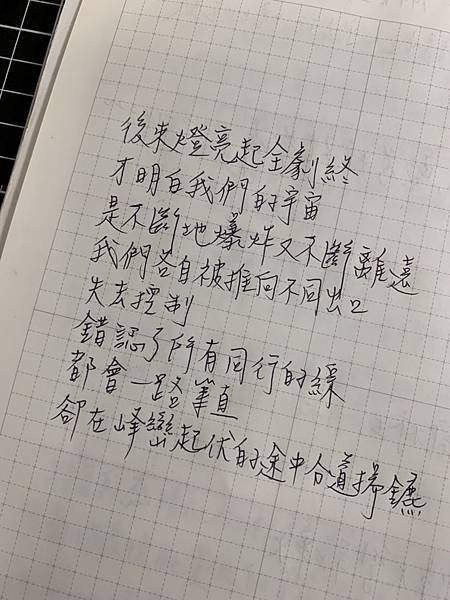 後來燈亮起全劇終
才明白我們的宇宙
是不斷地爆炸又不斷離遠
我們各自被推向不同出口
失去控制
錯認了所有同行的線
都會一路筆直
卻在峰巒起伏的途中分道揚鑣